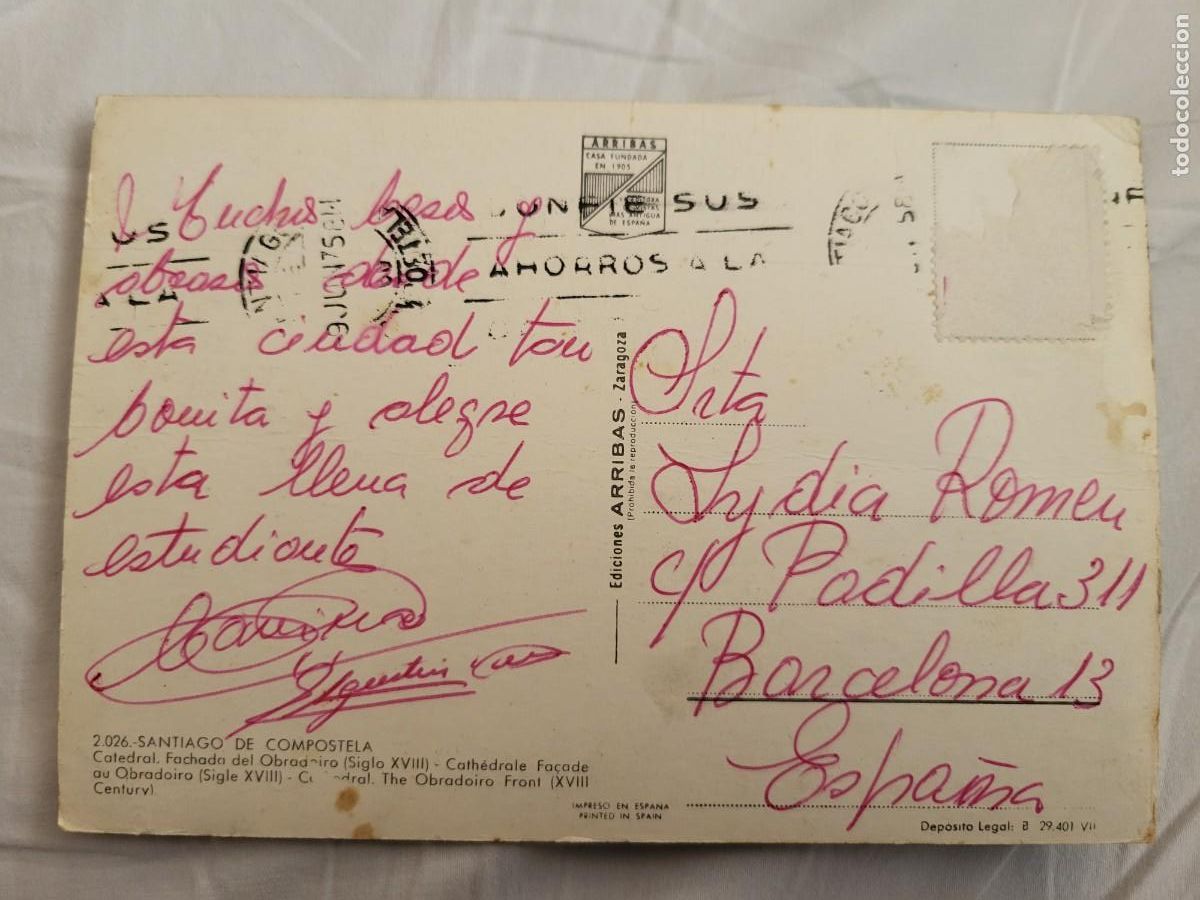 ARRIBAS
CASA FUNDADA
EN 1905
MAS ANTIGUA
DE ESPAÑA
SUS
AHORROS A LA
Muchos besos y
abrasos desde
esta ciudad tan
bonita y alegre
esta llena de
estudiante
Srta
Lydia Romeu
c/ Padilla 311
Barcelona 13
España
Ediciones ARRIBAS - Zaragoza
(Prohibida la reproducción)
2.026.-SANTIAGO DE COMPOSTELA
Catedral. Fachada del Obradoiro (Siglo XVIII) - Cathédrale Façade
au Obradoiro (Sigle XVIII) - Cathedral. The Obradoiro Front (XVIII
Century)
IMPRESO EN ESPAÑA
PRINTED IN SPAIN
Depósito Legal: B 29.401 VII
todocoleccion